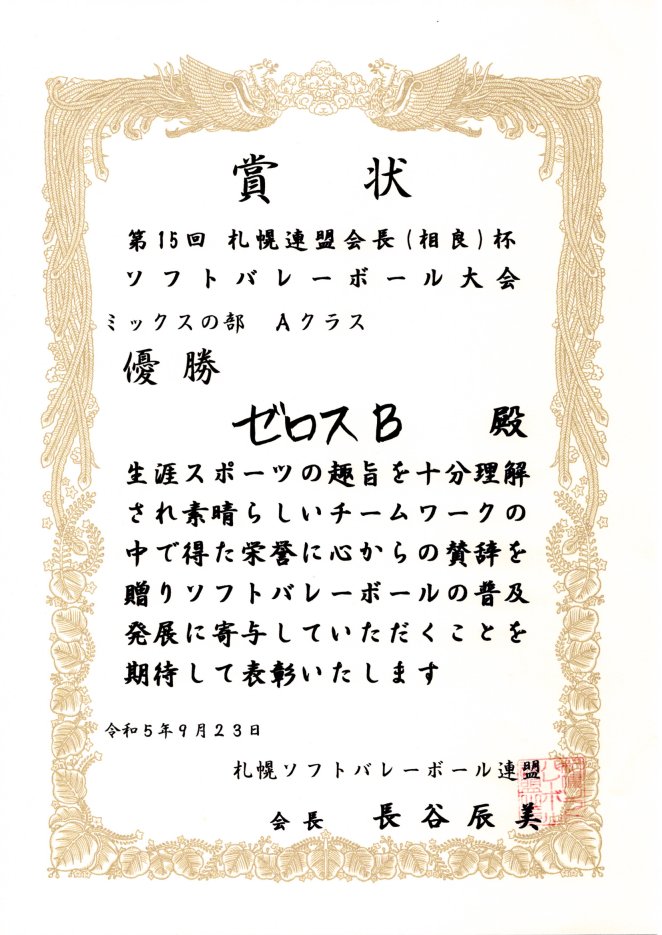 賞状
第15回 札幌連盟会長(相良)杯
ソフトバレーボール大会
ミックスの部 Aクラス
優勝
ゼロスB 殿
生涯スポーツの趣旨を十分理解
され素晴らしいチームワークの
中で得た栄誉に心からの賛辞を
贈りソフトバレーボールの普及
発展に寄与していただくことを
期待して表彰いたします
令和5年9月23日
札幌ソフトバレーボール連盟
会長 長谷辰美